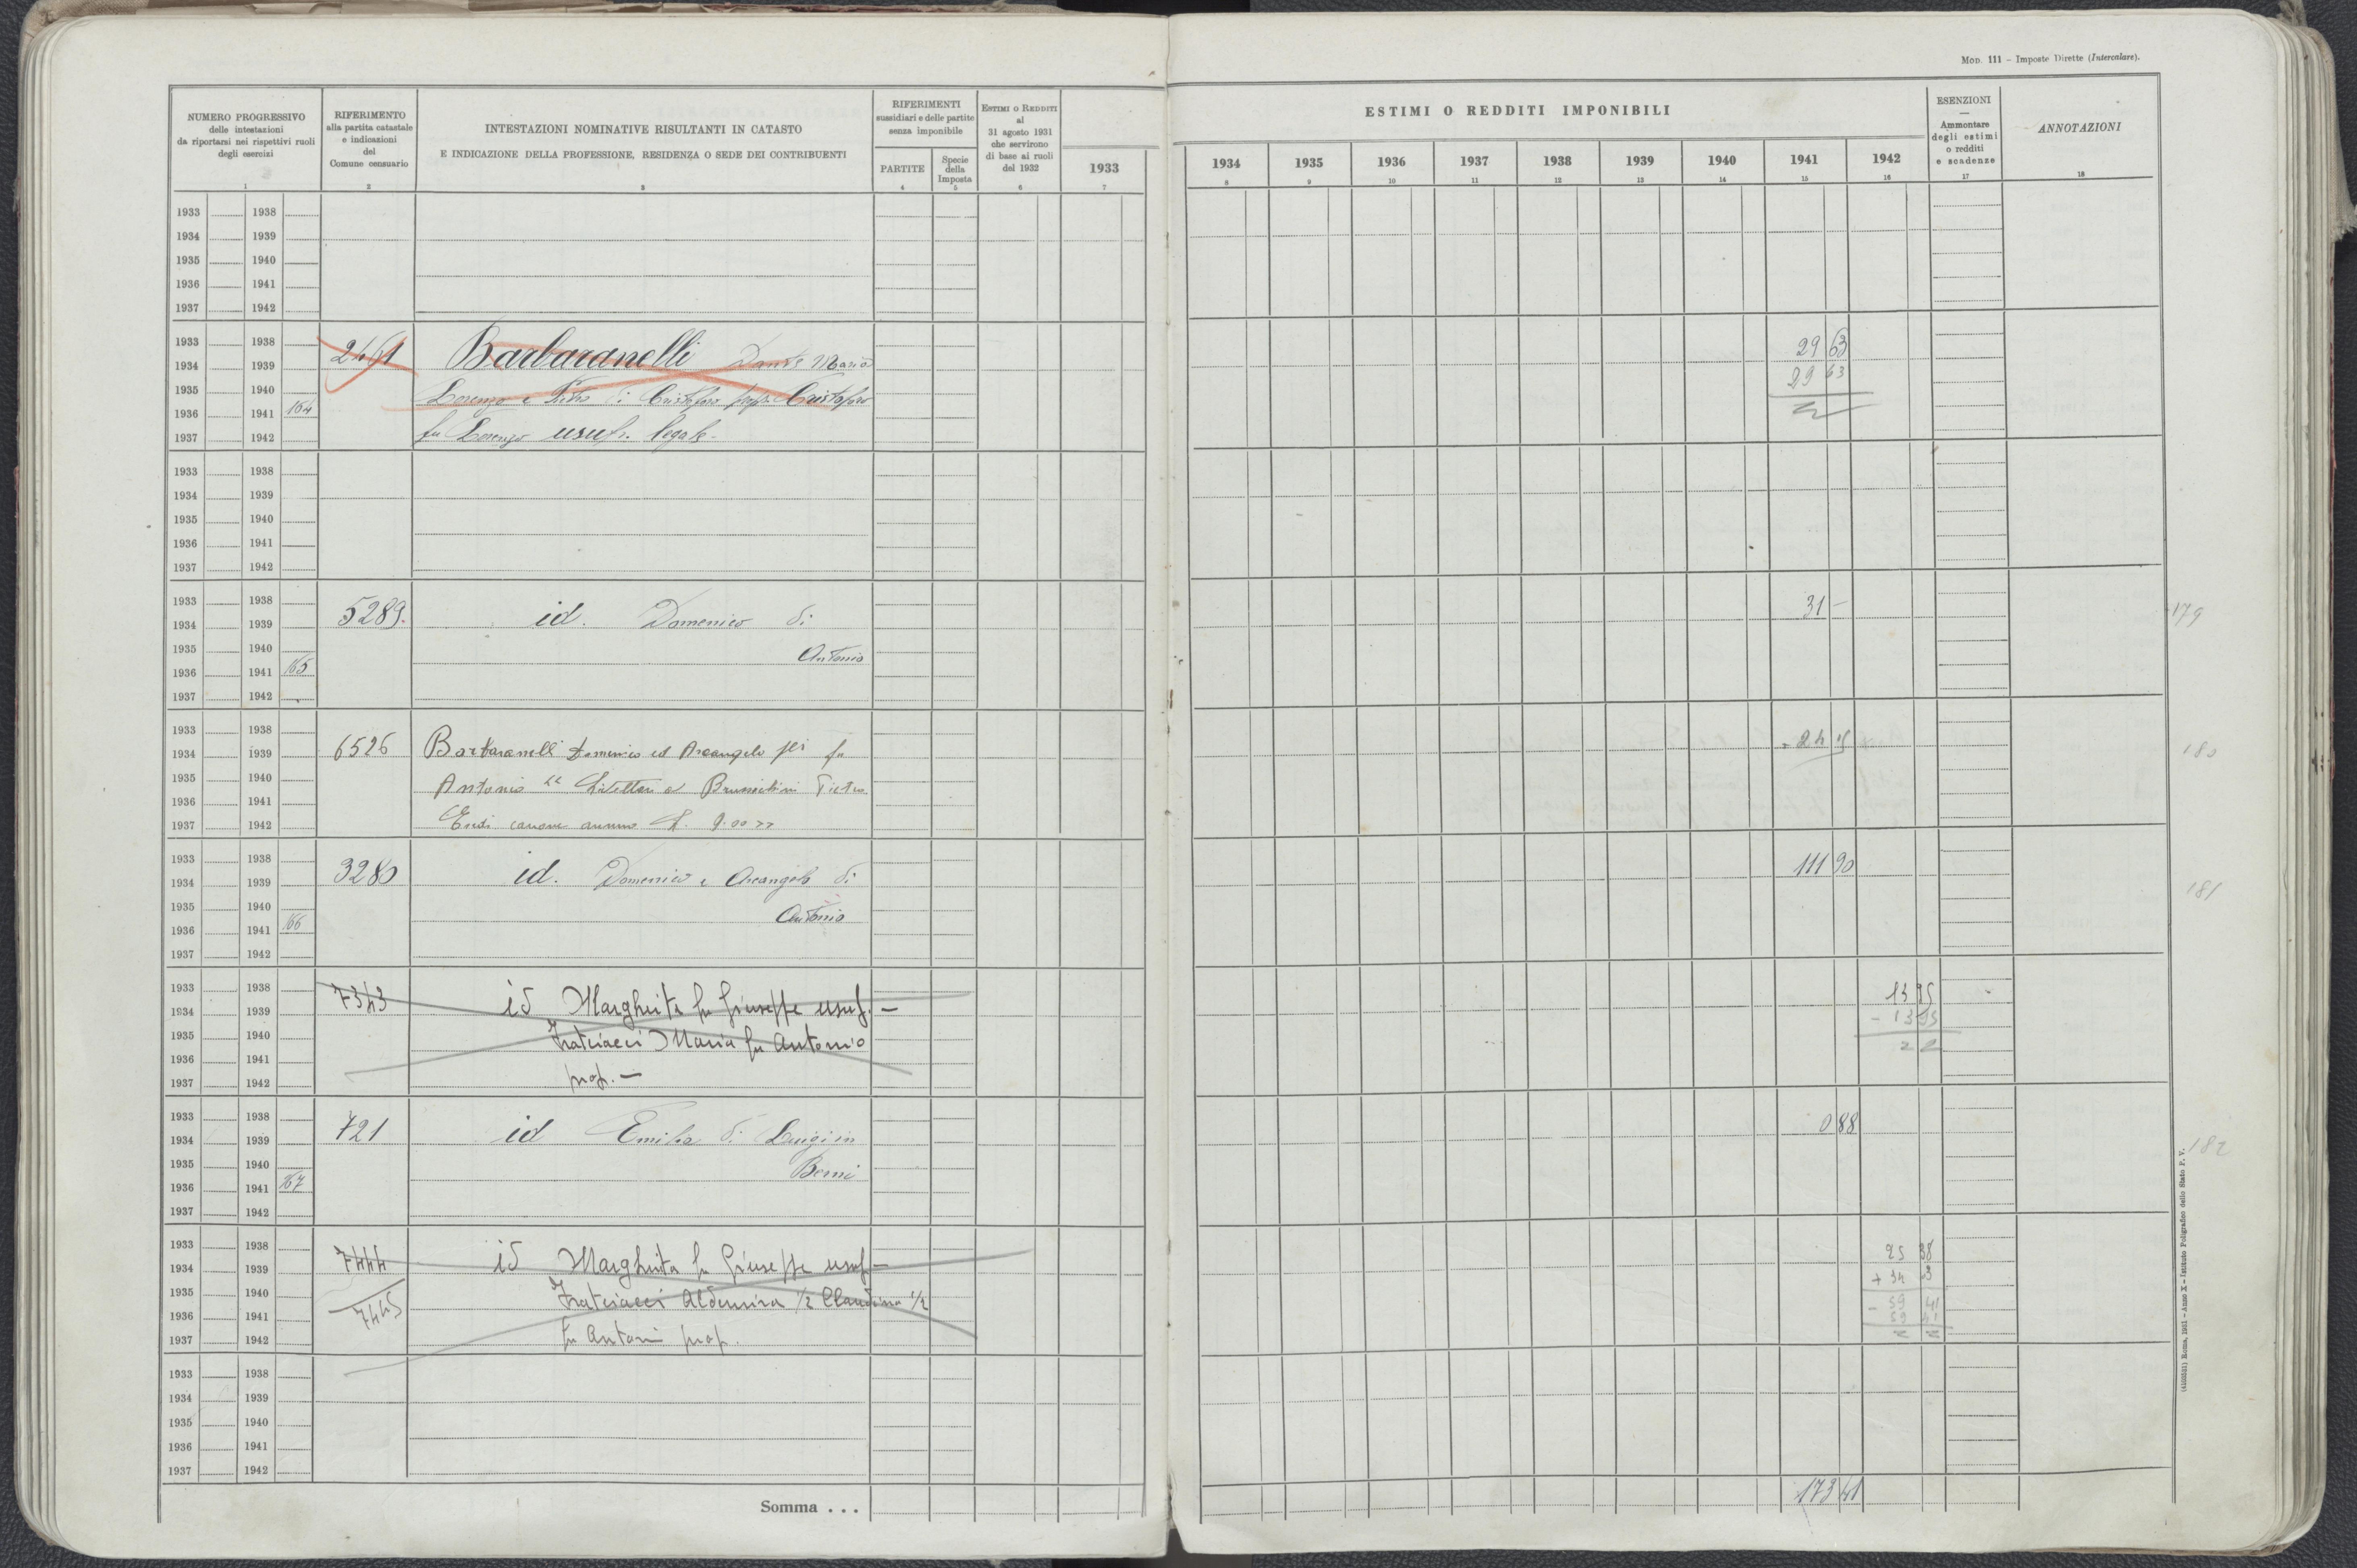 Mod. 111 – Imposte Dirette (Intercalare).
NUMERO PROGRESSIVO
delle intestazioni
da riportarsi nei rispettivi ruoli
degli esercizi
1
RIFERIMENTO
alla partita catastale
e indicazioni
del
Comune censuario
2
INTESTAZIONI NOMINATIVE RISULTANTI IN CATASTO
E INDICAZIONE DELLA PROFESSIONE, RESIDENZA O SEDE DEI CONTRIBUENTI
3
RIFERIMENTI
sussidiari e delle partite
senza imponibile
PARTITE
4
Specie
della
Imposta
5
Estimi o Redditi
al
31 agosto 1931
che servirono
di base ai ruoli
del 1932
6
1933
7
ESTIMI O REDDITI IMPONIBILI
1934 1935 1936 1937 1938 1939 1940 1941 1942
8 9 10 11 12 13 14 15 16
ESENZIONI
—
Ammontare
degli estimi
o redditi
e scadenze
17
ANNOTAZIONI
18
1933 1938
1934 1939
1935 1940
1936 1941
1937 1942
1933 1938 29 63
1934 1939 2461 Barbaranelli Dante Mario
1935 1940 29 63
Lorenzo e Pietro di Cristoforo propr. Cristoforo
1936 1941 164
1937 1942 fu Lorenzo usufr. legale.
1933 1938
1934 1939
1935 1940
1936 1941
1937 1942
1933 1938
1934 1939 5289. id. Domenico di 31 – 179
1935 1940 Antonio
1936 1941 165
1937 1942
1933 1938
1934 1939 6526 Barbaranelli Domenico ed Arcangelo fu 180
1935 1940
Antonio
1936 1941
1937 1942 canone annuo
1933 1938
1934 1939 3280 id. Domenico e Arcangelo di 111 90 181
1935 1940 Antonio
1936 1941 166
1937 1942
1933 1938
1934 1939 7343 id Margherita fu Giuseppe usuf. – 13 95
– 13 95
1935 1940 Fratciacci Maria fu Antonio
1936 1941
1937 1942 prop. –
1933 1938
1934 1939 721 id Emilia di Luigi in 0 88 182
1935 1940 Berni
1936 1941 167
1937 1942
1933 1938 25 38
1934 1939 7444 id Margherita fu Giuseppe usuf –
1935 1940 Fratciacci 1/2 Claudina 1/2
1936 1941 7445 – 59 41
59 41
1937 1942 fu Antoni prop.
1933 1938
1934 1939
1935 1940
1936 1941
1937 1942
Somma . . . 173 41
Roma, 1931 – Anno X – Istituto Poligrafico dello Stato P. V.